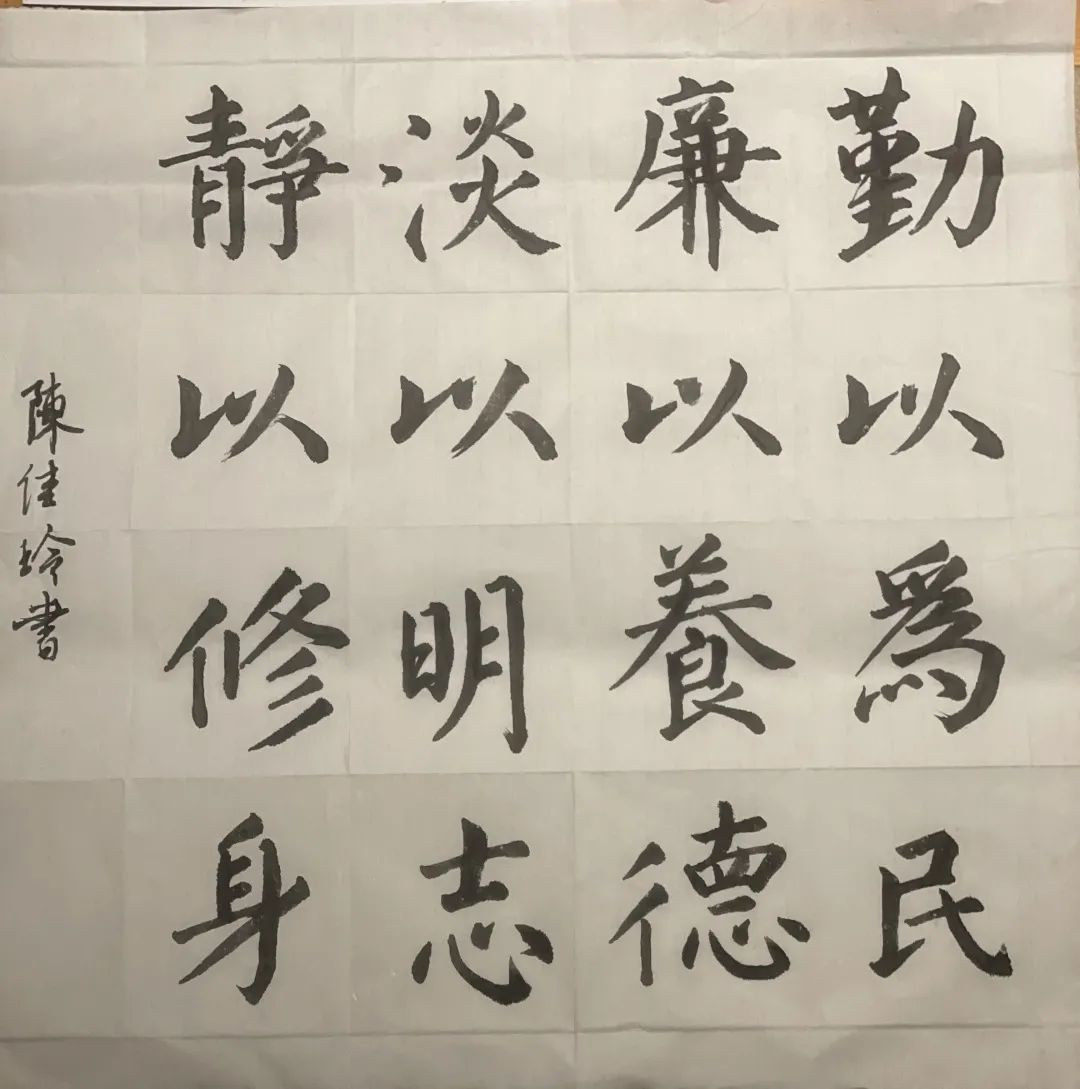 勤以爲民
廉以養德
淡以明志
靜以修身
陳佳玲書